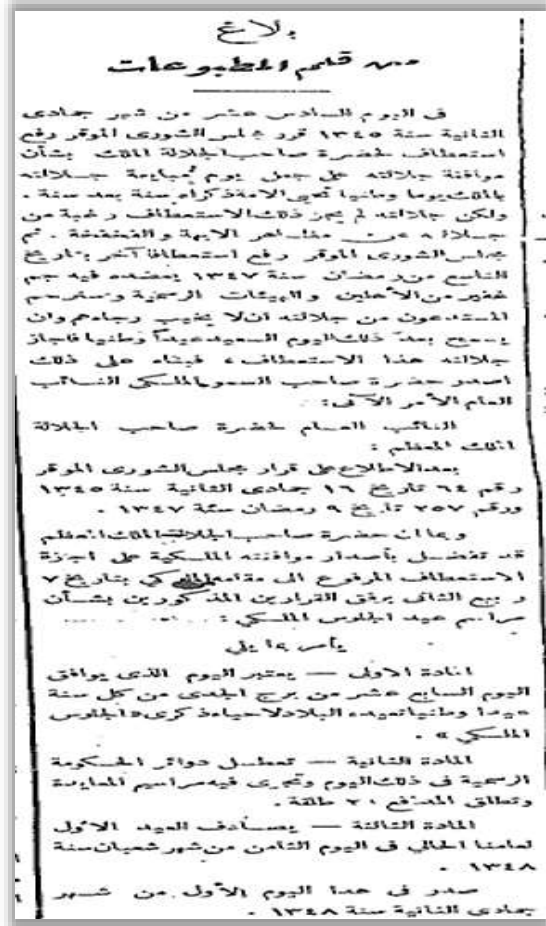 بلاغ
من قلم المطبوعات
فى اليوم السادس عشر من شهر جمادى
الثانية سنة ١٣٤٥ قرر مجلس الشورى الموقر رفع
استعطاف لحضرة صاحب الجلالة الملك بشأن
موافقة جلالته على جعل يوم مبايعة جلالته
بالملك يوما وطنيا تحيى الامة ذكراه سنة بعد سنة .
ولكن جلالته لم يجز ذلك الاستعطاف رغبة من
جلالته عن مظاهر الابهة والفخفخة . ثم
مجلس الشورى الموقر رفع استعطافا آخر بتاريخ
التاسع من رمضان سنة ١٣٤٧ يعضده فيه جم
غفير من الأهلين والهيئات الرسمية
المستدعون من جلالته ان لا يخيب رجاءهم وان
يسمح بعد ذلك اليوم السعيد عيداً وطنيا فاجاز
جلالته هذا الاستعطاف ، فبناء على ذلك
اصدر حضرة صاحب السمو الملكى النائب
العام الأمر الآتى :
النائب العام لحضرة صاحب الجلالة
الملك المعظم :
بعد الاطلاع على قرار مجلس الشورى الموقر
رقم ٦٤ تاريخ ١٦ جمادى الثانية سنة ١٣٤٥
ورقم ٢٥٧ تاريخ ٩ رمضان سنة ١٣٤٧ .
وبما ان حضرة صاحب الجلالة الملك المعظم
قد تفضل بأصدار موافقته الملكية على اجزة
الاستعطاف المرفوع الى مقامه بتاريخ ٧
ربيع الثانى برفق القرارين المذكورين بشأن
مراسم عيد الجلوس الملكى :
يأمر بما يلى
المادة الاولى — يعتبر اليوم الذى يوافق
اليوم السابع عشر من برج الجدى من كل سنة
عيداً وطنيا تعيده البلاد لاحياء ذكرى « الجلوس
الملكى » .
المادة الثانية — تعطل دوائر الحكومة
الرسمية فى ذلك اليوم وتجرى فيه مراسيم المعايدة
وتطلق المدافع ٢٠ طلقة .
المادة الثالثة — يصادف العيد الاول
لعامنا الحالى فى اليوم الثامن من شهر شعبان سنة
١٣٤٨ .
صدر فى هذا اليوم الأول من شهر
جمادى الثانية سنة ١٣٤٨ .